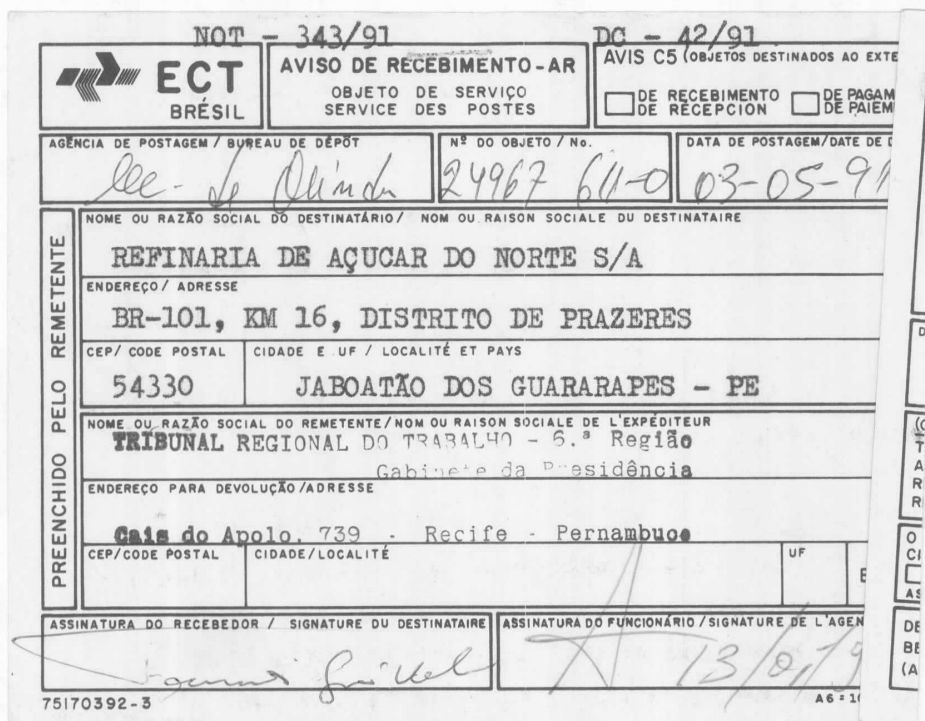 NOT - 343/91 DC - 42/91
ECT
BRÉSIL
AVISO DE RECEBIMENTO-AR
OBJETO DE SERVIÇO
SERVICE DES POSTES
AVIS C5 (OBJETOS DESTINADOS AO EXTE
DE RECEBIMENTO
DE RÉCEPCION
DE PAGAM
DE PAIEM
AGÊNCIA DE POSTAGEM / BUREAU DE DÉPÔT
de Olinda
Nº DO OBJETO / No.
24967 611-0
DATA DE POSTAGEM/DATE DE D
03-05-91
PREENCHIDO PELO REMETENTE
NOME OU RAZÃO SOCIAL DO DESTINATÁRIO / NOM OU RAISON SOCIALE DU DESTINATAIRE
REFINARIA DE AÇUCAR DO NORTE S/A
ENDEREÇO / ADRESSE
BR-101, KM 16, DISTRITO DE PRAZERES
CEP/ CODE POSTAL
54330
CIDADE E UF / LOCALITÉ ET PAYS
JABOATÃO DOS GUARARAPES - PE
NOME OU RAZÃO SOCIAL DO REMETENTE/NOM OU RAISON SOCIALE DE L'EXPÉDITEUR
TRIBUNAL REGIONAL DO TRABALHO - 6.ª Região
Gabinete da Presidência
ENDEREÇO PARA DEVOLUÇÃO/ADRESSE
Cais do Apolo, 739 - Recife - Pernambuco
CEP/CODE POSTAL
CIDADE/LOCALITÉ
UF
ASSINATURA DO RECEBEDOR / SIGNATURE DU DESTINATAIRE
ASSINATURA DO FUNCIONÁRIO / SIGNATURE DE L'AGEN
75170392-3